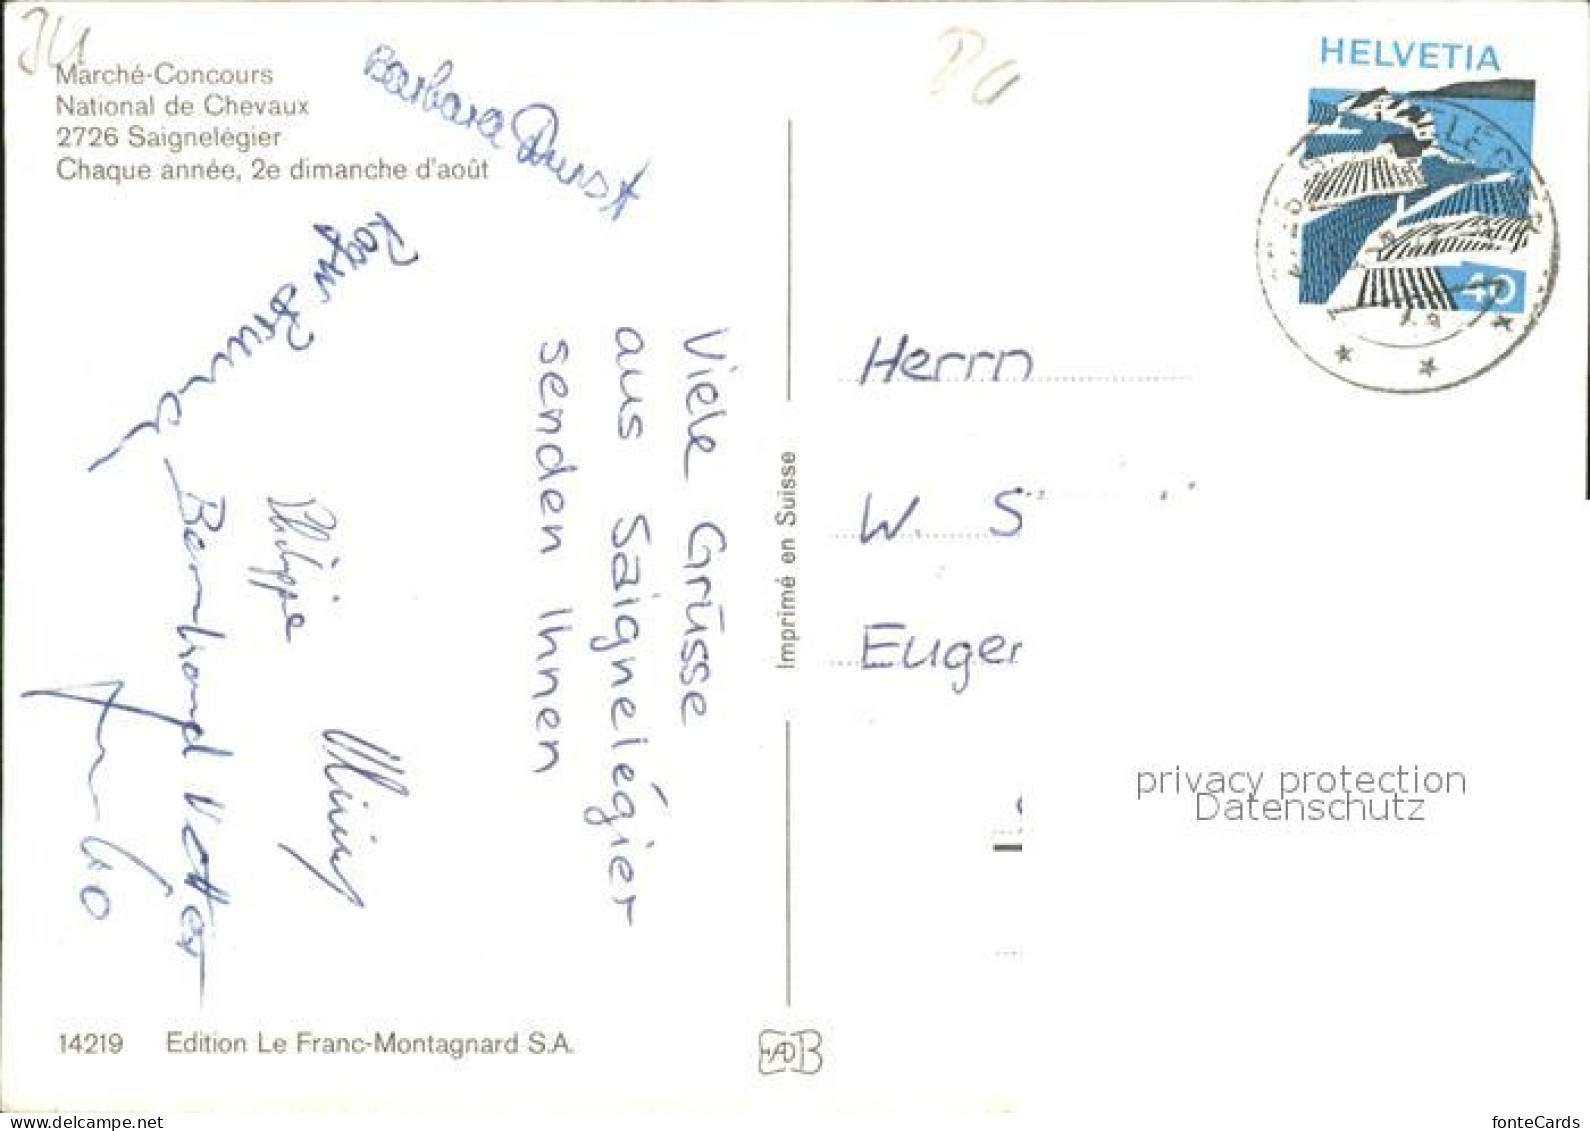 JU
Marché-Concours
National de Chevaux
2726 Saignelégier
Chaque année, 2e dimanche d'août
Barbara Durst
Viele Grüsse
aus Saignelégier
senden Ihnen
Philippe
Bernhard Vetter
Imprimé en Suisse
HELVETIA
40
Herrn
W. S
Euger
privacy protection
Datenschutz
14219 Edition Le Franc-Montagnard S.A.
www.ansichtskartenversand.com
fonteCards